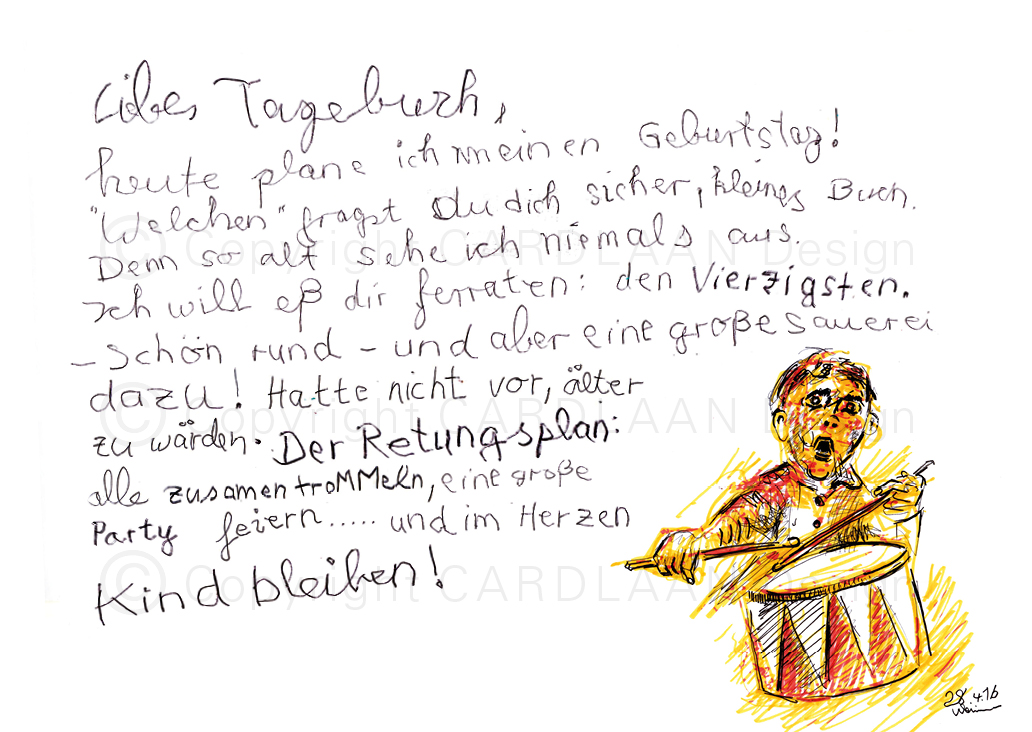 Libes Tagebuch,
heute plane ich meinen Geburtstag!
"Welchen" fragst du dich sicher, kleines Buch.
Denn so alt sehe ich niemals aus.
Ich will eß dir ferraten: den Vierzigsten.
– Schön rund – und aber eine große Sauerei
dazu! Hatte nicht vor, älter
zu wärden. Der Retungsplan:
alle zusamentroMMeln, eine große
Party feiern..... und im Herzen
Kind bleiben!
© Copyright CARDLAAN Design
© Copyright CARDLAAN Design
© Copyright CARDLAAN Design
28.4.16